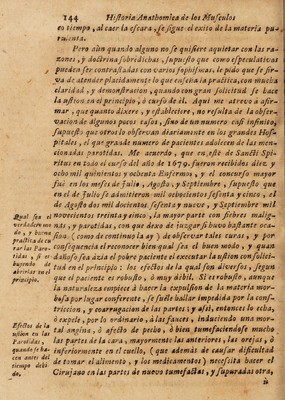 144 Historia Anathomica de los Musculos
co tiempo, al caer la escara, se sigue el exito de la materia purulenta.
Pero aun quando alguno no se quisiere aquietar con las razones, y doctrina sobredichas, supuesto que como especulativas
pueden ser contrastadas con varios sophismas, le pido que se sirva
de atender placidamente lo que enseña la practica, con mucha
claridad, y demonstracion, quando con gran solicitud se hace
la ustion en el principio, ò curso de él. Aqui me atrevo à afirmar,
que quanto dixere, y estableciere, no resulta de la observacion
de algunos pocos casos, sino de un numero casi infinito,
supuesto que otros lo observan diariamente en los grandes Hospitales,
el que grande numero de pacientes adolecen de las mencionadas
parotidas. Me acuerdo, que en este de Sancti Spiritus
en todo el curso del año de 1679. fueron recibidos diez y
ocho mil quinientos y ochenta Enfermos, y el concurso mayor
fuè en los meses de Julio, Agosto, y Septiembre, supuesto que
en el de Julio se admitieron mil ochocientos sesenta y cinco, el
de Agosto dos mil docientos sesenta y nueve, y Septiembre mil
novecientos treinta y cinco, la mayor parte con fiebres malignas,
y parotidas, con que dexo de juzgar si huvo bastante ocasion
(como de continuo la ay) de observar tales curas, y por
consequencia el reconocer bien qual sea el buen modo, y quan
dañoso sea àzia el pobre paciente el executar la ustion con solicitud
en el principio: los efectos de la qual son diversos, segun
que el paciente es robusto, ò muy dèbil. Si es robusto, aunque
la naturaleza empiece à hacer la expulsion de la materia morbosa
por lugar conferente, se suele hallar impedida por la constriccion,
y coarrugacion de las partes; y assi, entonces lo echa,
ò expele, por lo ordinario, à las fauces, induciendo una mortal
angina, ò afecto de pecho, ò bien tumefaciendose mucho
las partes de la cara, mayormente las anteriores, las orejas, ò
inferiormente en el cuello, (que además de causar dificultad
de tomar el alimento, y los medicamentos) necesita hacer el
Cirujano en las partes de nuevo tumefactas, y supuradas otra,
Qual sea el
verdadero modo,
y buena
practica de curar
las Parotidas,
si es
suficiente
abrirlas en el
principio.
Efectos de la
ustion en las
Parotidas,
quando se hacen
antes del
tiempo debido.